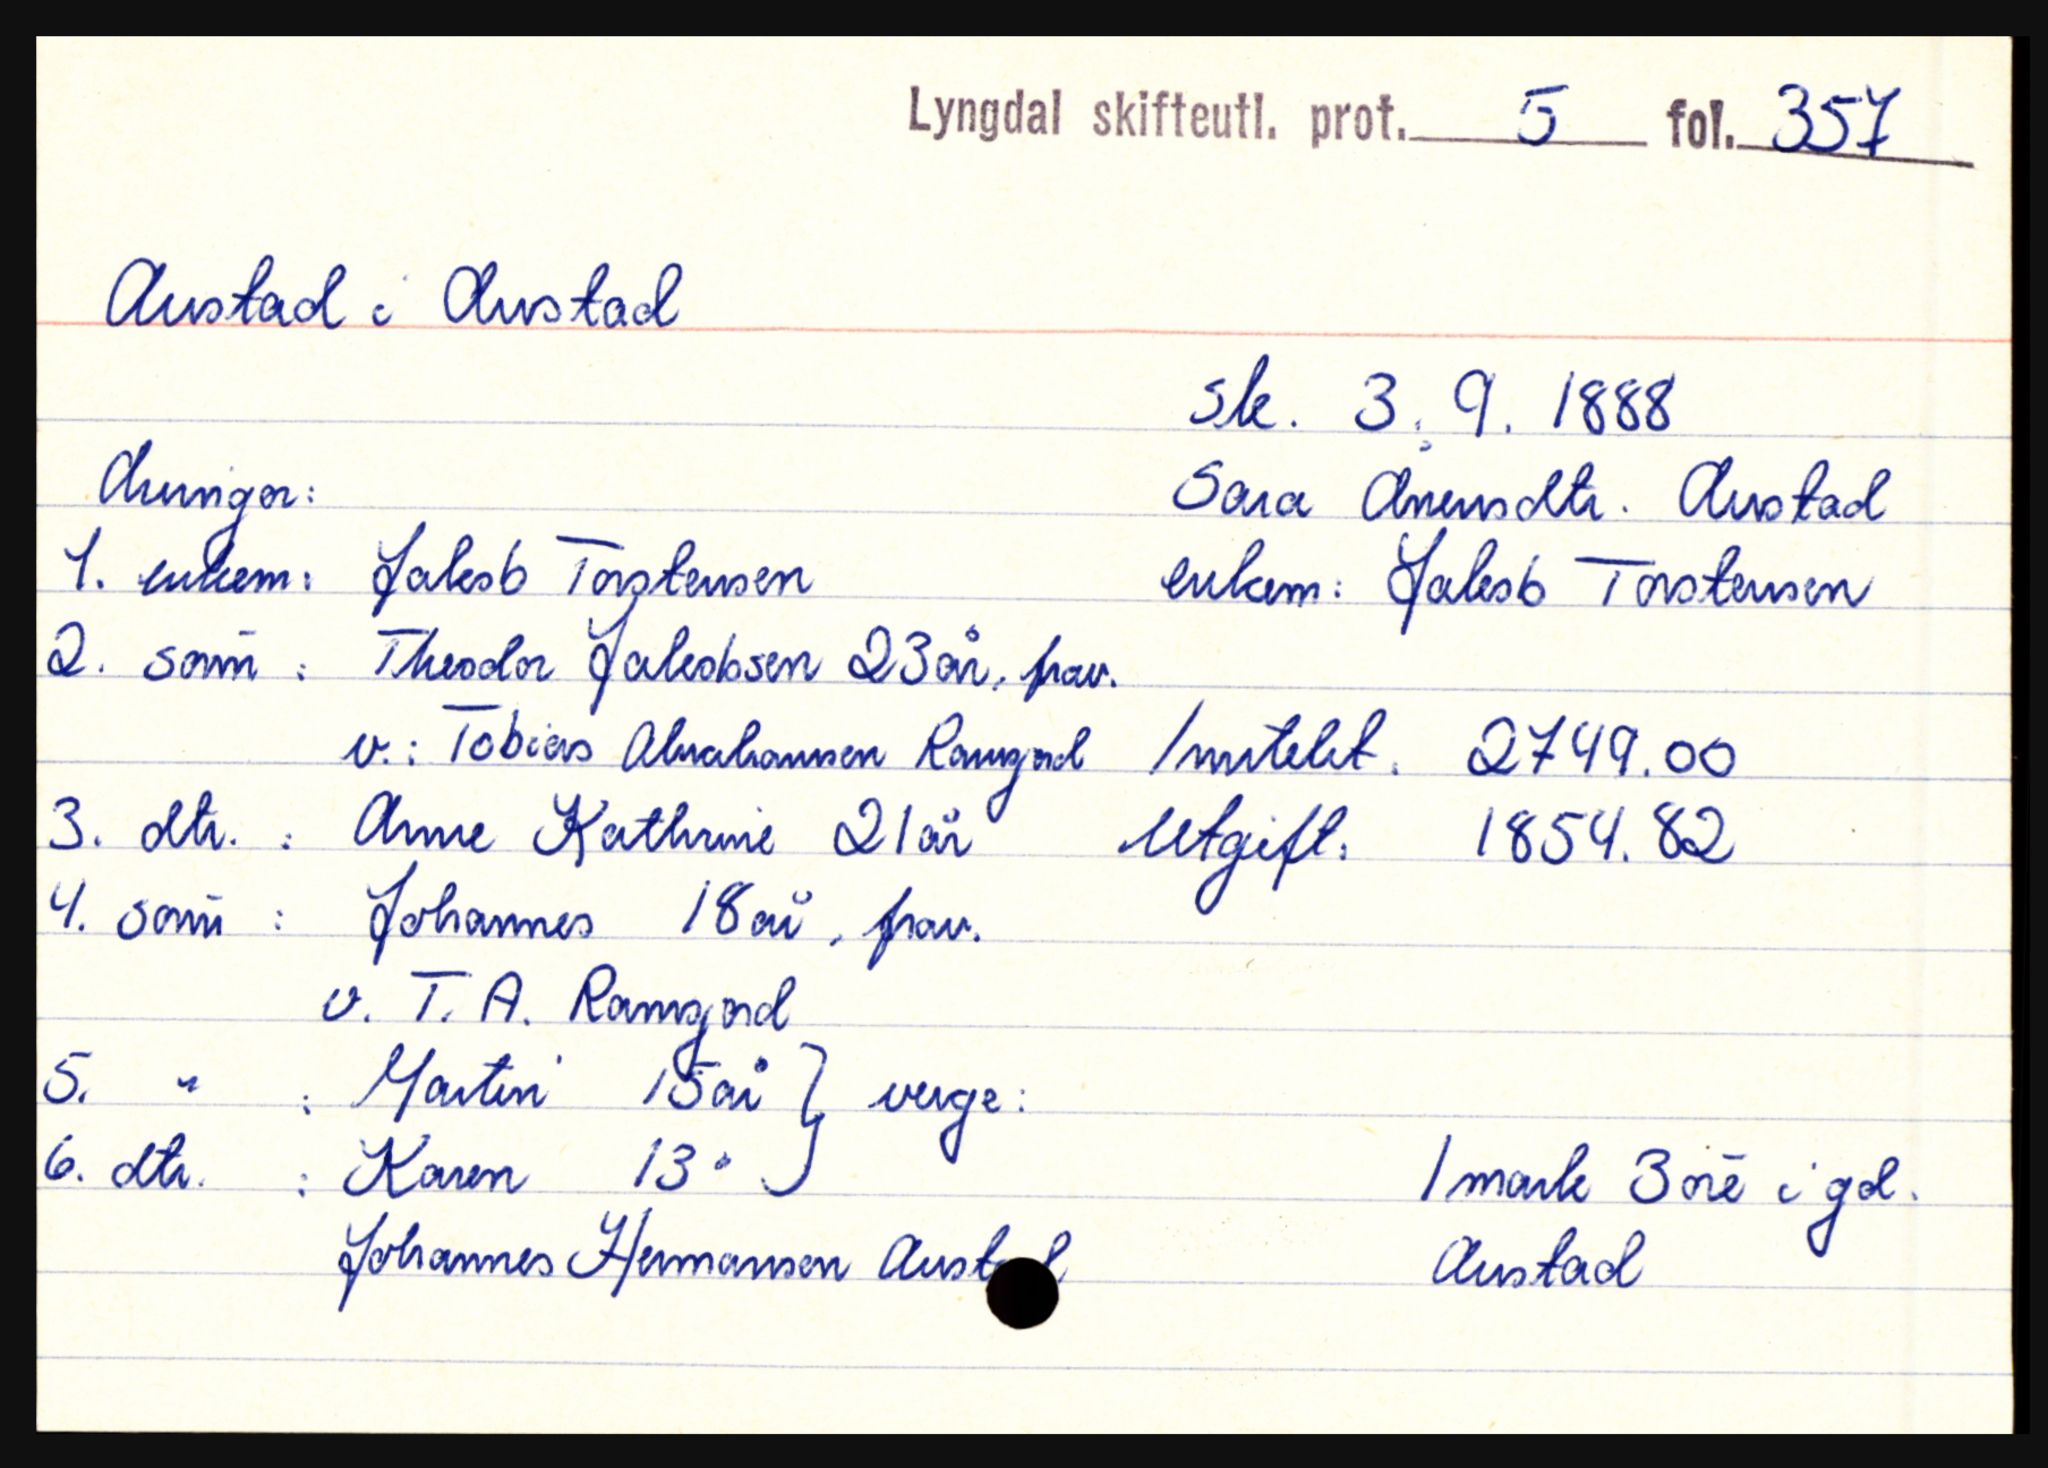 Lyngdal skifteutl. prot. 5 fol. 357
Austad i Austad
sk. 3. 9. 1888
Arvingar:
Sara Arensdtr. Austad
1. enkem: Jakob Torstensen
enkem: Jakob Torstensen
2. sønn : Theodor Jakobsen 23 år, frav.
v.: Tobias Abrahamsen Ramsgord
Inntekt. 2749.00
3. dtr. : Anne Kathrine 21 år
Utgift: 1854.82
4. sønn : Johannes 18 år, frav.
v. T. A. Ramsgord
5. " : Martin 15 år } verge:
6. dtr. : Karen 13 "
1 mark 3 øre i gd.
Johannes Hermansen Austad
Austad